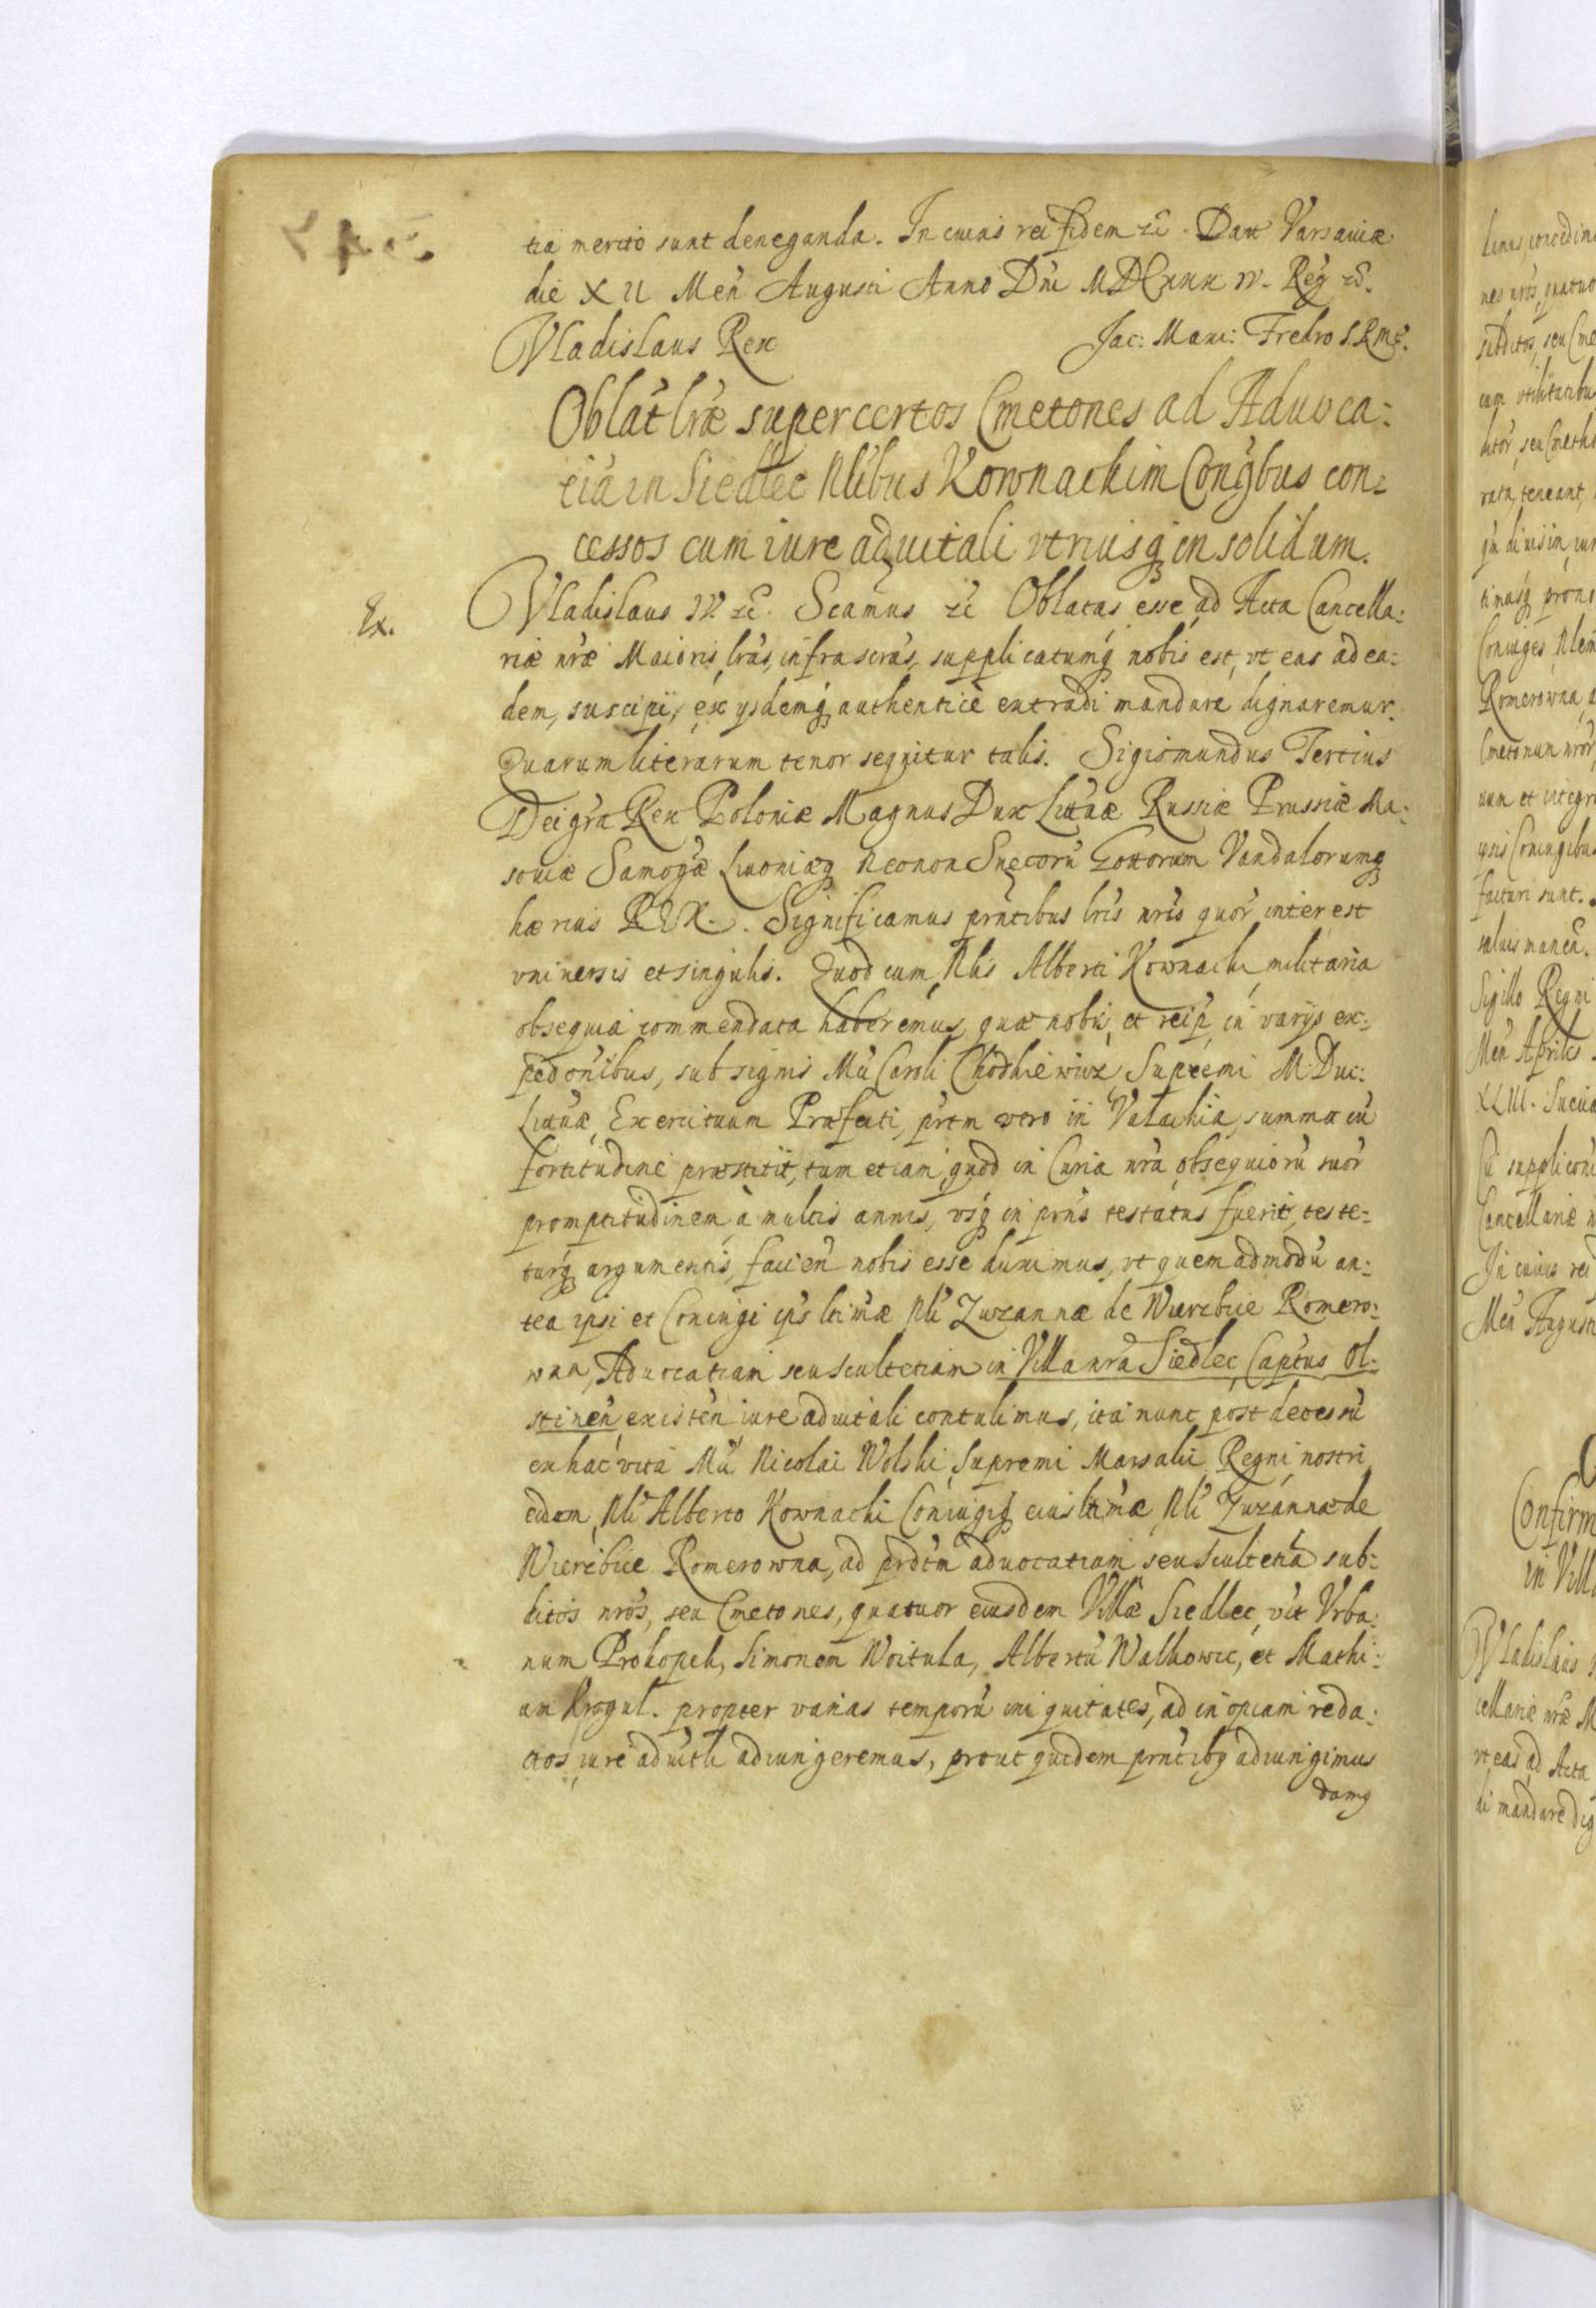 tia merito sunt deneganda. In cuius rei fidem &c. Datt Varsauiæ
die XII Men Augusti Anno Dni MDCXXXIV. Reg &c.
Vladislaus Rex
Jac: Maxi: Fredro S.R.M.
Oblat lræ super certos Cmetones ad Aduoca:
tiã in Siedlec Nlibus Kownackim Conÿbus con:
cessos cum iure aduitali vtriusq in solidum.
Ex.
Vladislaus IV. &c. Scãmus &c Oblatas esse, ad Acta Cancella:
riæ nræ Maioris, lras, infrascras, supplicatumq nobis est, vt eas ad ea:
dem, suscipi, ex ysdemq authentice extradi mandare dignaremur.
Quarum literarum tenor sequitur talis. Sigismundus Tertius
Dei gra Rex Poloniæ Magnus Dux Lituæ Russiæ Prussiæ Ma:
souiæ Samogæ Liuoniæq necnon Suecorũ Gottorum Vandalorumq
hærius REX. Significamus prntibus lris nris quor interest
vniuersis et singulis. Quod cum Nlis Alberti Kownacki militaria
obsequia commendata haberemus, quæ nobis et reip in varijs ex:
pedonibus, sub signis Mci Caroli Chodkiewicz, Supremi M. Duc:
Lituæ, Exercituum Præfecti, prtm vero in Valachia, summa cũ
fortitudine præstitit, tum etiam, quod in Curia nra obsequiorũ suor
promptitudinem, à multis annis, vsq in prns testatus fuerit, teste:
turq argumentis, facien nobis esse duximus, vt quemadmodũ an:
tea ipsi et Coniugi ips ltimæ Nli Zuzannæ de Wierzbice Romero:
wna, Aduocatiam seu Scultetiam in Villa nra Siedlec, Captus Ol:
stinen, existen iure aduitali contulimus, ita nunc post decessũ
ex hac vita Mci Nicolai Wolski, Supremi Marsalci Regni nostri
eidem Nli Alberto Kownacki Coniugiq eius ltimæ Nli Zuzannæ de
Wierzbice Romerowna, ad prdtm aduocatiam seu Scultetiã sub:
ditos nros, seu Cmetones, quatuor eiusdem Villæ Siedlec, vit Vrba:
num Prokopek, Simonem Woitula, Albertũ Walkowic, et Mathi:
am Krogul. propter varias temporũ iniquitates, ad inopiam reda:
ctos, iure aduitli adiungeremus, prout quidem prntibq adiungimus
damq